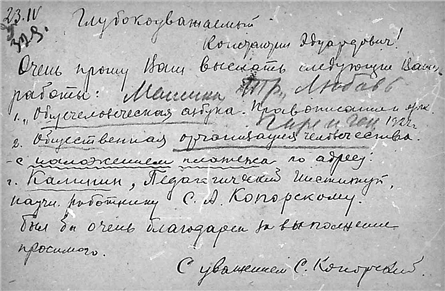 23.IV
39 г.
Глубокоуважаемый
Константин Эдуардович!
Очень прошу Вас выслать следующие Ваши
работы:
1. „Общечеловеческая азбука. Правописание и язык
1927 г.
2. Общественная организация человечества
– с наложением платежа по адресу:
г. Калинин, Педагогический Институт,
научн. работнику С. А. Копорскому.
Был бы очень благодарен за выполнение
просимого.
С уважением С. Копорский.